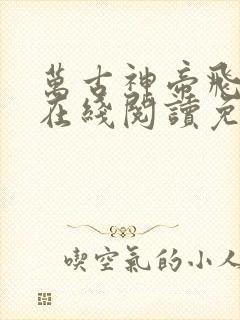 萬古神帝飛
在綫閱讀免
喫空氣的小人